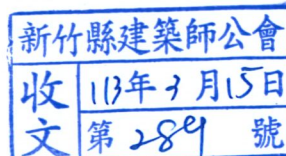 新竹縣建築師公會
收文
113年3月15日
第289號